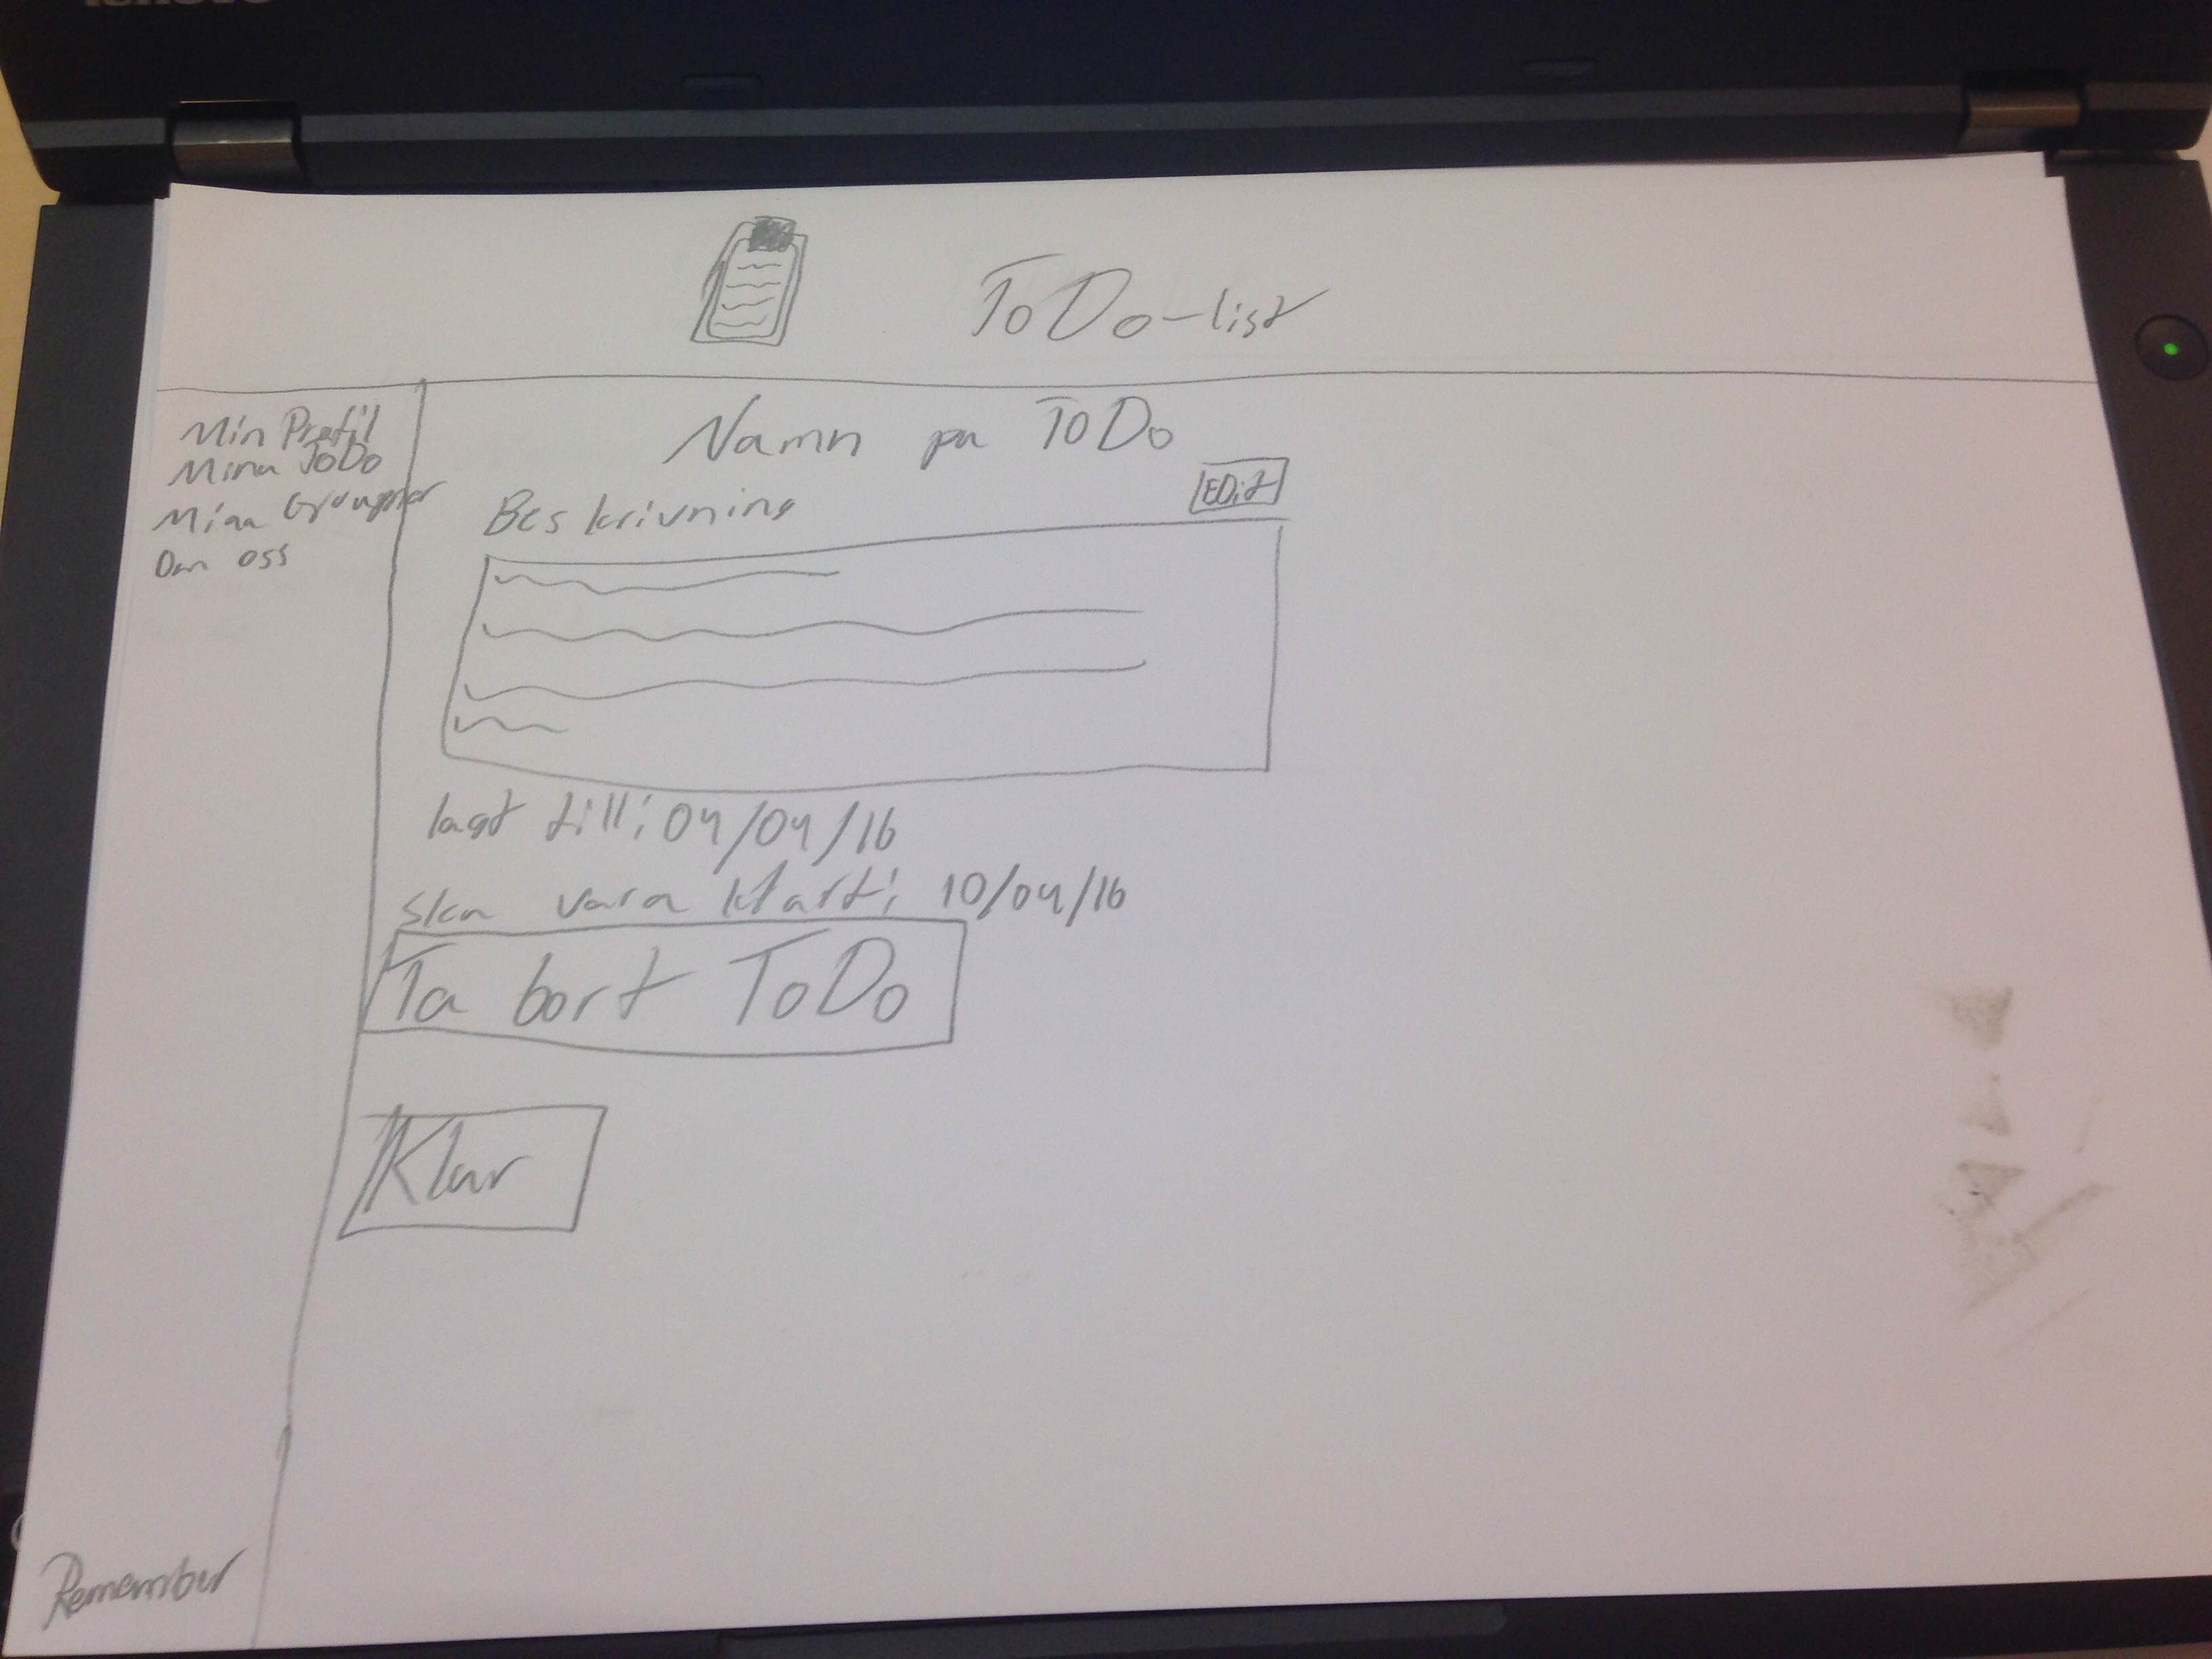 lenovo
ToDo-list
Min Profil
Mina ToDo
Mina Grupper
Om oss
Namn pa ToDo
EDit
Beskrivning
lagt till: 04/04/16
ska vara klart: 10/04/16
Ta bort ToDo
Klar
Remember